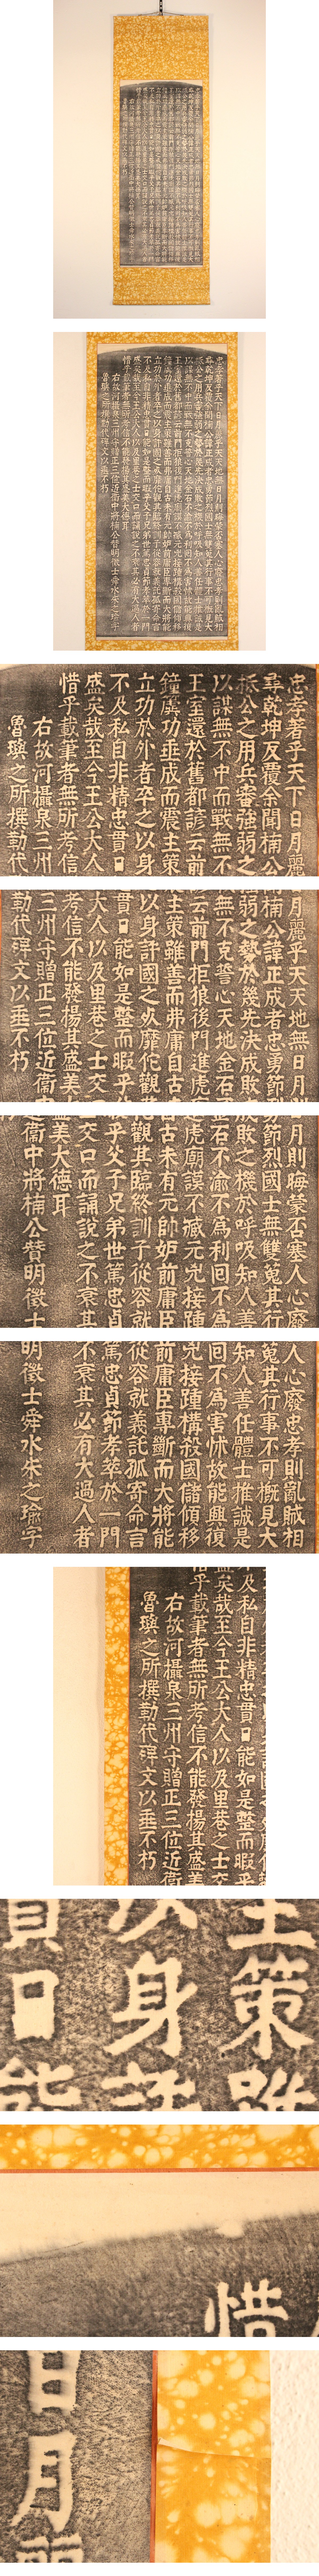 忠孝著乎天下日月麗乎天天地無日月則晦蒙否塞人心廢忠孝則亂賊相
尋乾坤反覆余聞楠公諱正成者忠勇節烈國士無雙蒐其行事不可概見大
抵公之用兵審強弱之勢於幾先決成敗之機於呼吸知人善任體士推誠是
以謀無不中而戰無不克誓心天地金石不渝不為利回不為害怵故能興復
王室還於舊都諺云前門拒狼後門進虎廟謨不臧元兇接踵構殺國儲傾移
鐘虡功垂成而震主策雖善而弗庸自古未有元帥妒前庸臣專斷而大將能
立功於外者卒之以身許國之死靡佗觀其臨終訓子從容就義託孤寄命言
不及私自非精忠貫日能如是整而暇乎父子兄弟世篤忠貞節孝萃於一門
盛矣哉至今王公大人以及里巷之士交口而誦說之不衰其必有大過人者
惜乎載筆者無所考信不能發揚其盛美大德耳
右故河攝泉三州守贈正三位近衛中將楠公贊明徵士舜水朱之瑜字
魯璵之所撰勒代碑文以垂不朽